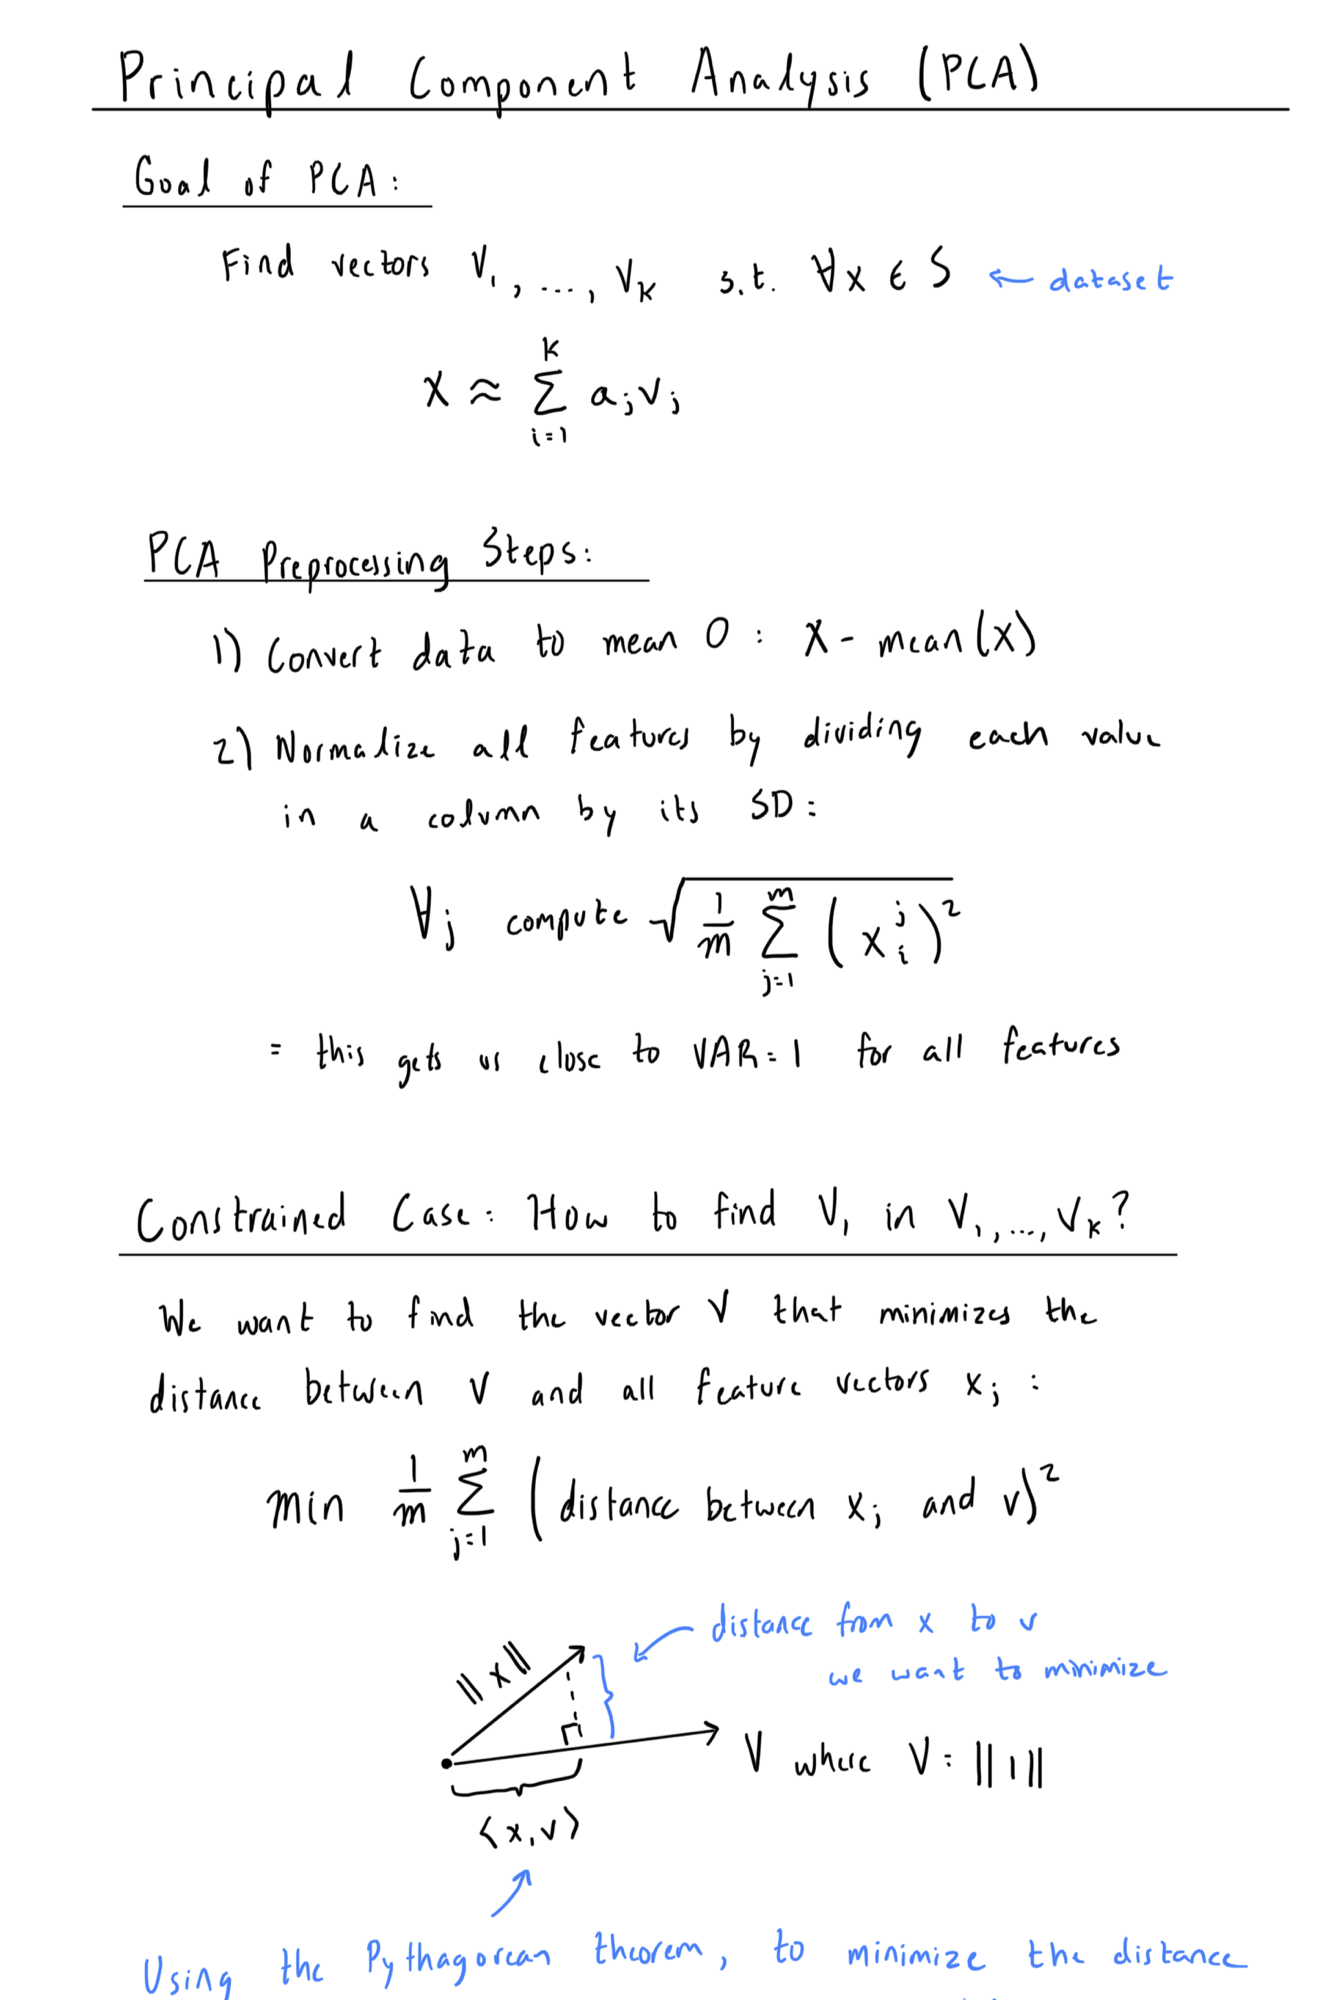 Principal Component Analysis (PCA)
Goal of PCA:
Find vectors V₁, ..., Vₖ s.t. ∀x ∈ S ← dataset
x ≈ ∑_{i=1}^{K} a_j v_j
PCA Preprocessing Steps:
1) Convert data to mean 0 : X - mean(x)
2) Normalize all features by dividing each value
in a column by its SD:
∀j compute √(1/m ∑_{j=1}^{m} (x_i^j)²)
= this gets us close to VAR = 1 for all features
Constrained Case: How to find V₁ in V₁, ..., Vₖ?
We want to find the vector V that minimizes the
distance between V and all feature vectors x_j :
min 1/m ∑_{j=1}^{m} (distance between x_j and v)²
distance from x to v
we want to minimize
||x||
V where V = ||1||
⟨x, v⟩
Using the Pythagorean theorem, to minimize the distance